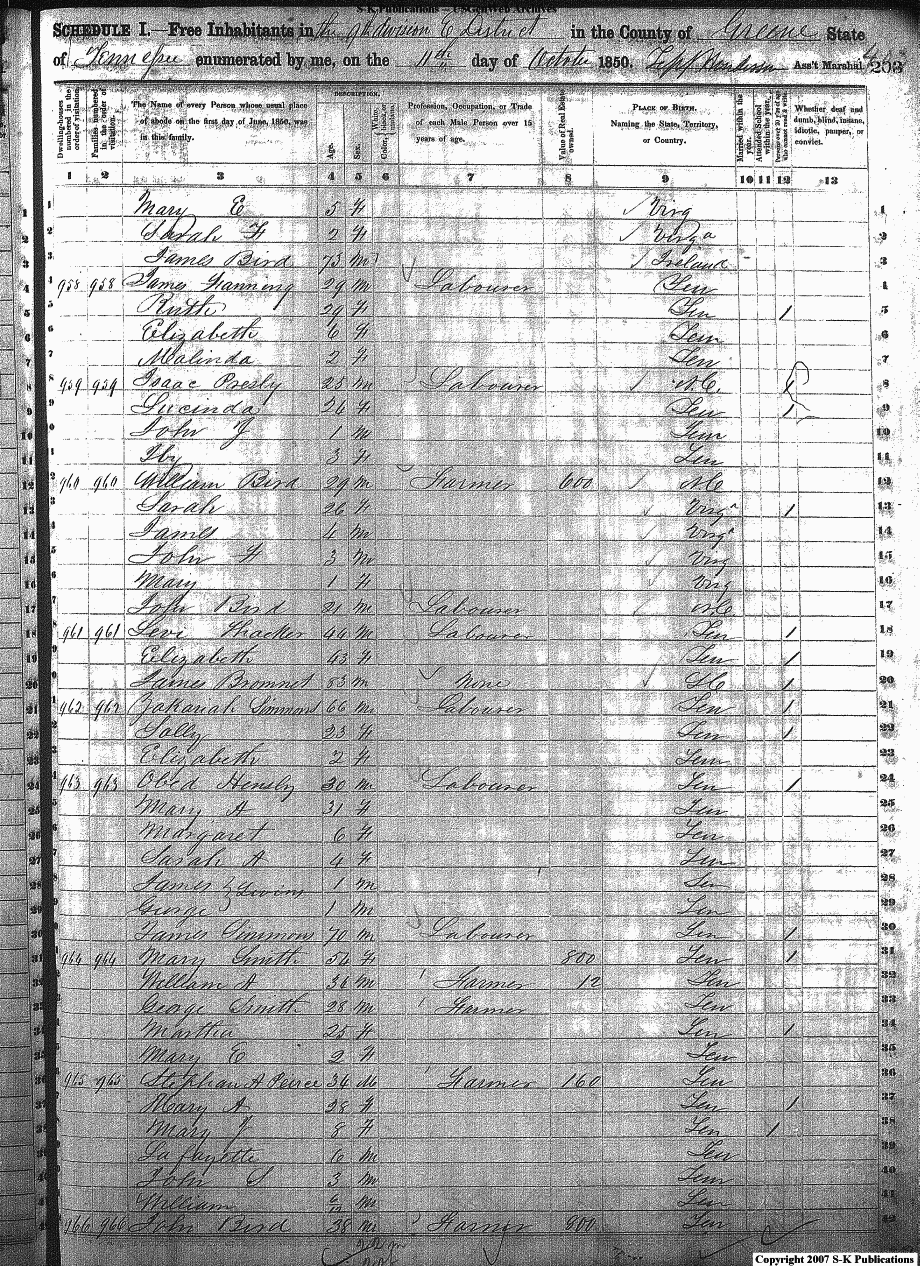 S-K Publications – USGenWeb Archives
SCHEDULE I.—Free Inhabitants in the 9th division E District in the County of Greene State
of Tennessee enumerated by me, on the 11th day of October 1850. Ass't Marshal 203
Dwelling-houses numbered in the order of visitation.
Families numbered in the order of visitation.
The Name of every Person whose usual place of abode on the first day of June, 1850, was in this family.
DESCRIPTION.
Age.
Sex.
Color, White, black, or mulatto.
Profession, Occupation, or Trade of each Male Person over 15 years of age.
Value of Real Estate owned.
PLACE OF BIRTH. Naming the State, Territory, or Country.
Married within the year.
Attended School within the year.
Persons over 20 y'rs of age who cannot read & write.
Whether deaf and dumb, blind, insane, idiotic, pauper, or convict.
1 2 3 4 5 6 7 8 9 10 11 12 13
1 Mary E 5 F Virg 1
2 Sarah F 2 F Virga 2
3 James Bird 73 M Ireland 3
4 958 958 James Fanning 29 M Labourer Ten 4
5 Ruth 29 F Ten 1 5
6 Elizabeth 6 F Tem 6
7 Malinda 2 F Ten 7
8 959 959 Isaac Presly 25 M Labourer N.C. 1 8
9 Lucinda 26 F Ten 1 9
10 John J 1 M Tem 10
11 Ivy 3 F Ten 11
12 960 960 William Bird 29 M Farmer 600 N C 12
13 Sarah 26 F Virga 1 13
14 James 4 M Virga 14
15 John F 3 M Virg 15
16 Mary 1 F Virg 16
17 John Bird 21 M Labourer N C 17
18 961 961 Levi Thacker 44 M Labourer Ten 1 18
19 Elizabeth 43 F Ten 1 19
20 James Bromnet 83 M None S C 1 20
21 962 962 Zakariah Simmons 66 M Labourer Ten 1 21
22 Sally 23 F Ten 1 22
23 Elizabeth 2 F Tem 23
24 963 963 Obed Hensly 30 M Labourer Ten 1 24
25 Mary A 31 F Ten 25
26 Margaret 6 F Ten 26
27 Sarah A 4 F Ten 27
28 James 1 M Ten 28
29 George 1 M Ten 29
30 James Simmons 70 M Labourer Ten 1 30
31 964 964 Mary Smith 54 F 800 Ten 1 31
32 William A 36 M Farmer 12 Ten 32
33 George Smith 28 M Farmer Ten 33
34 Marthia 25 F Ten 1 34
35 Mary E 2 F Ten 35
36 965 965 Stephan A Pierce 34 M Farmer 160 Ten 36
37 Mary A 28 F Ten 1 37
38 Mary J 8 F Ten 1 38
39 Lafayette 6 M Ten 39
40 John S 3 M Tem 40
41 William 6/12 M Ten 41
42 966 966 John Bird 38 M Farmer 800 Ten 42
Copyright 2007 S-K Publications